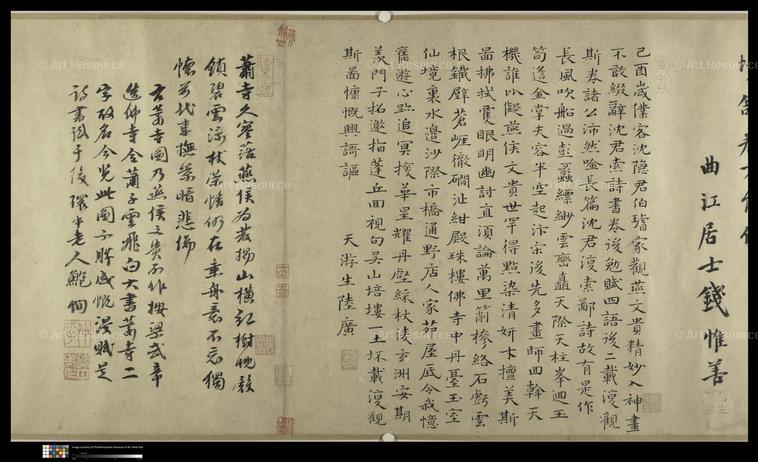 曲江居士錢惟善
己酉歲僕客沈隱君伯璿家觀燕文貴精妙入神畫
不敢綴辭沈君索詩書卷後勉賦四語後二載復觀
斯卷諸公沛然唫長篇沈君復索鄙詩故有是作
長風吹船過彭蠡縹緲雲巒矗天際天柱峯迴玉
筍逢金掌夫容半空起汴宋後先多畫師四幹天
機誰以儗燕侯文貴世罕得點染清妍才擅美斯
啚拂拭雙眼明幽討直須論萬里箭槮絡石虧雲
根鐵壁蒼崕徹磵沚紺殿珠樓佛寺中丹臺玉室
仙境裏水邊沙際市橋通野店人家茆屋底令我憶
舊遊心跡追冥搜華星耀丹壑綵杖凌玄洲安期
羨門子拓邀指蓬丘回視句吳山培塿一土坏載復觀
斯啚慷慨興謌謳
天游生陸廣
蕭寺久寥落燕侯為發揚山橫紅樹晚殿
鎖碧雲涼林情仍在乗舟意不忘獨
懷前代事撫景暗悲傷
右蕭寺圖乃燕侯文貴所作按梁武帝
造佛寺令蕭子雲飛白大書蕭寺二
字故名今覧此圖不勝感慨漫賦是
詩書識于後環中老人
© Art Resource
Image courtesy of The Metropolitan Museum of Art, New York